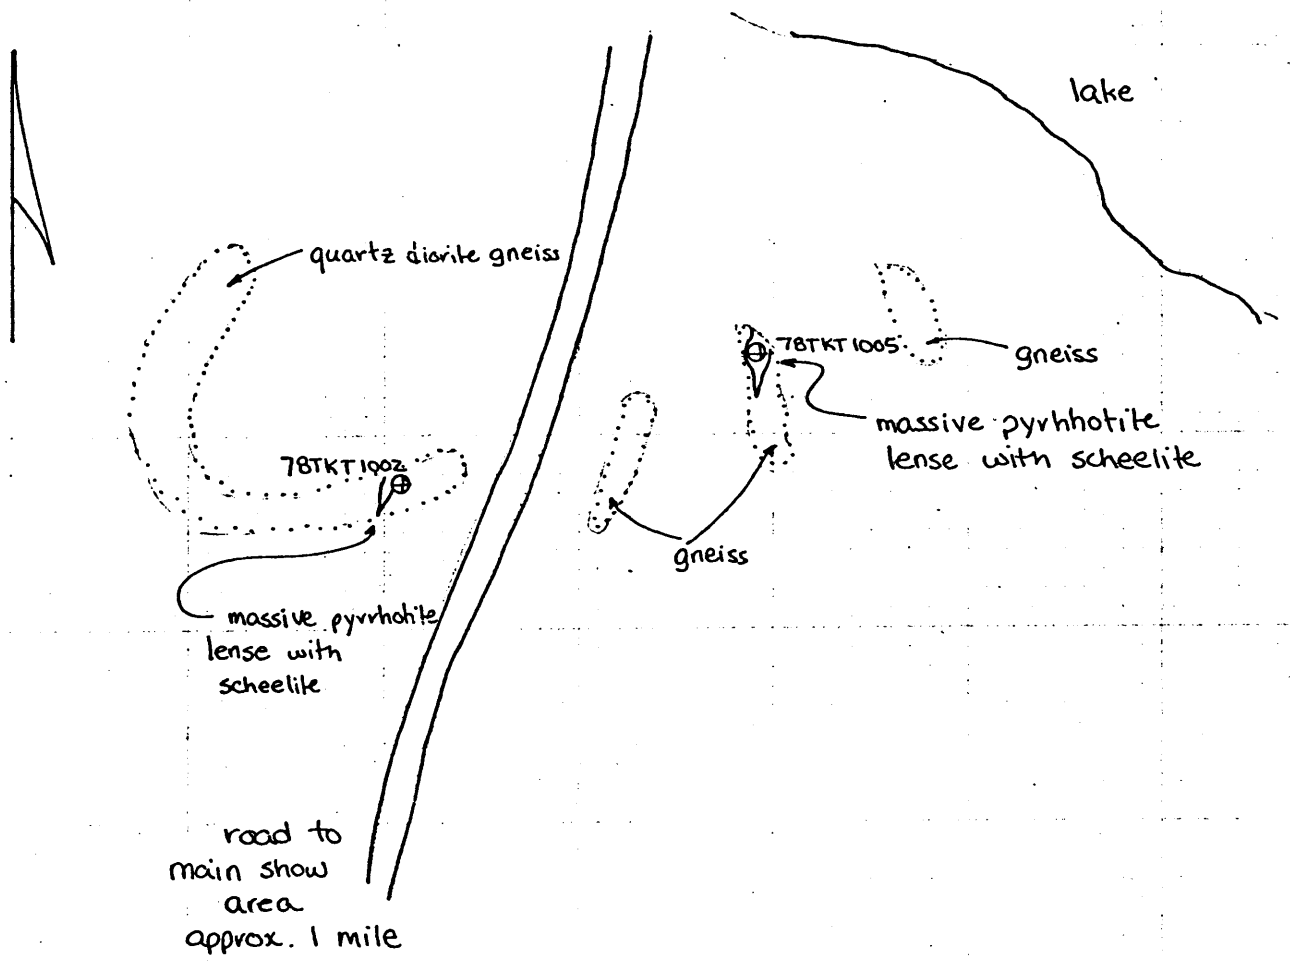 lake
quartz diorite gneiss
78TKT1005
gneiss
massive pyrhhotite
lense with scheelite
78TKT1002
gneiss
massive pyrrhotite
lense with
scheelite
road to
main show
area
approx. 1 mile